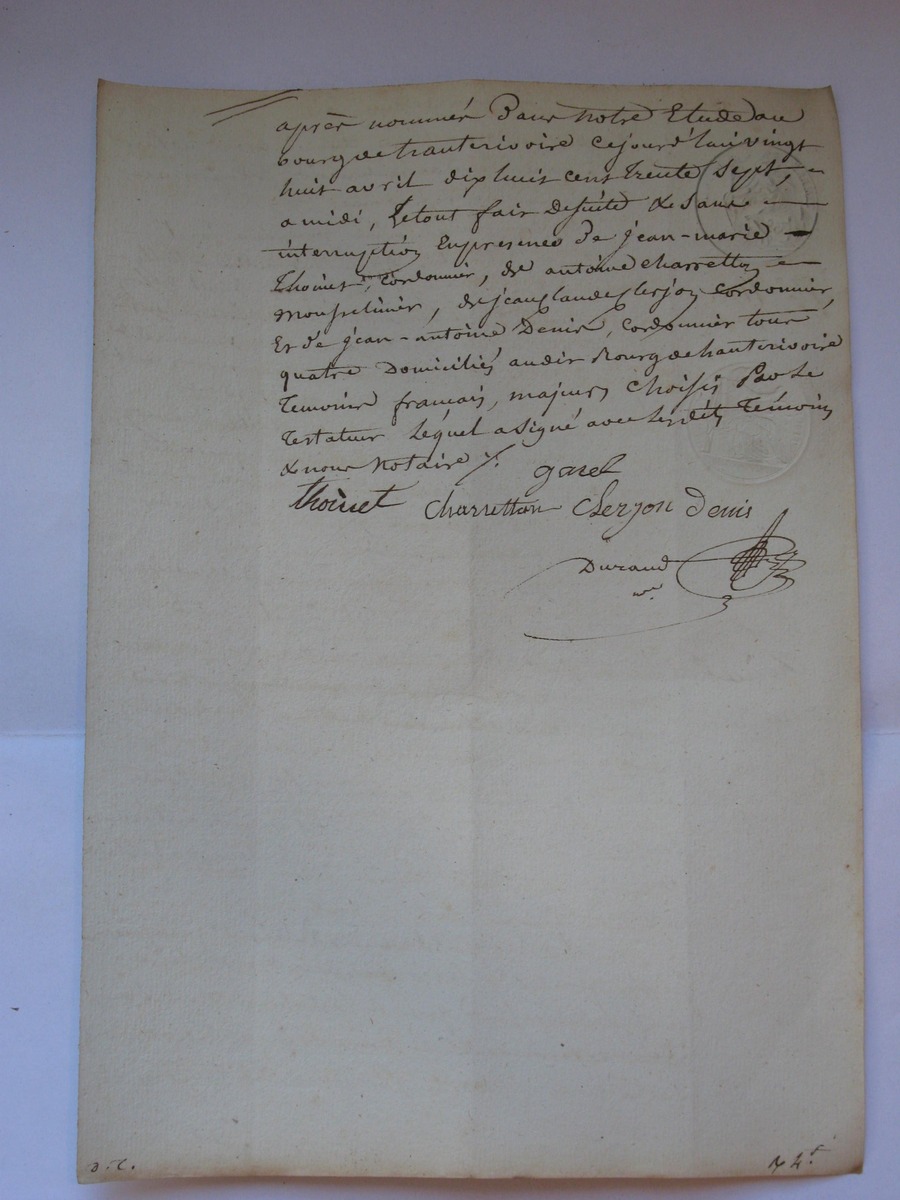 après nommés Dans notre Etude au
bourg de hauterivoire cejourd'hui vingt
huit avril dix huit cent trente sept,
a midi, Le tout fait de suite & sans
interruption En presence de jean-marie
Thoinet, Cordonnier, de antoine charretton
mousselinier, de jean claude clerjon cordonnier,
Et de jean-antoine Denis, cordonnier tous
quatre Domiciliés audit Bourg de hauterivoire
Temoins français, majeurs choisis Par Le
Testateur Lequel a signé avec Lesdits Témoins
& nous Notaire ./.
garel
thoinet charretton Clerjon Denis
Durand
nre